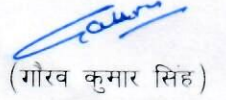 (गौरव कुमार सिंह)